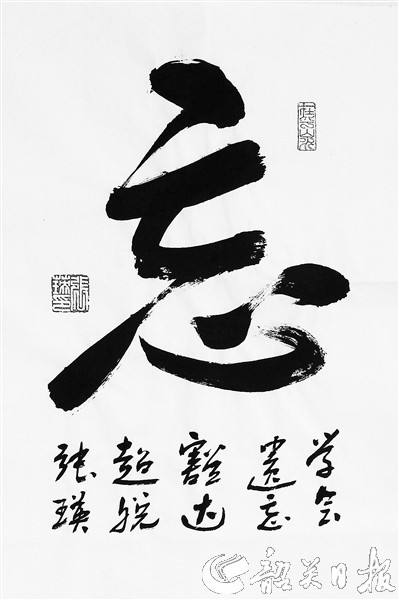 忘
学会
遗忘
豁达
超脱
张瑛
韶关日报